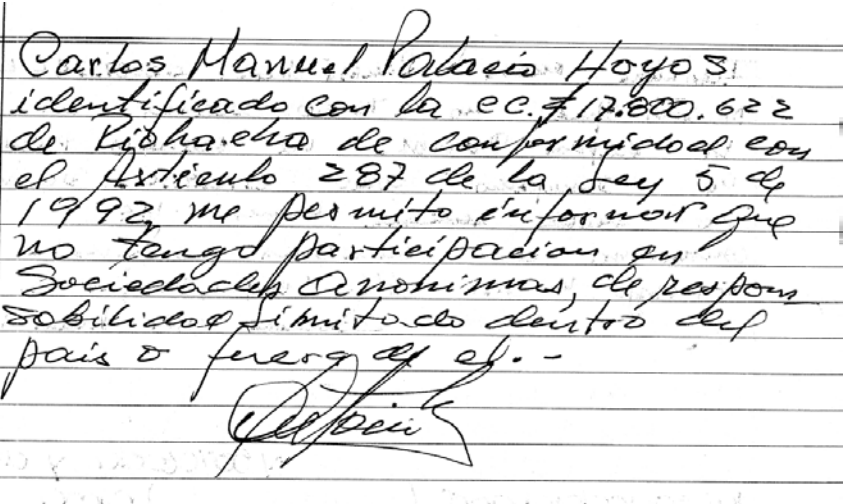 Carlos Manuel Palacio Hoyos
identificado con la cc. # 17.800.622
de Riohacha de conformidad con
el Articulo 287 de la Ley 5 de
1992 me permito informar que
no tengo participacion en
Sociedades anonimas, de respon
sabilidad limitado dentro del
pais o fuera de el.-